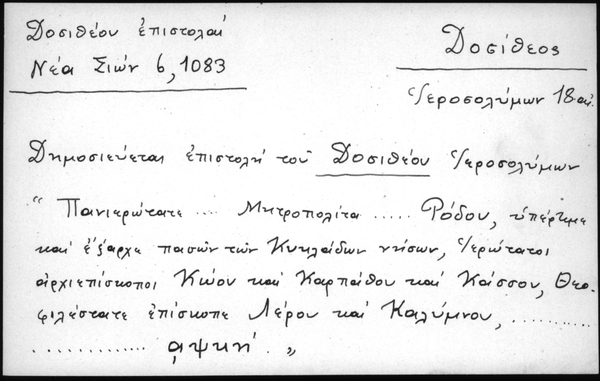 Δοσιθέου ἐπιστολαί
Νέα Σιών 6, 1083
Δοσίθεος
Ἱεροσολύμων 18 αἰ.
Δημοσιεύεται ἐπιστολή τοῦ Δοσιθέου Ἱεροσολύμων
“ Πανιερώτατε .... Μητροπολῖτα ..... Ρόδου, ὑπέρτιμε
καί ἔξαρχε πασῶν τῶν Κυκλάδων νήσων, Ἱερώτατοι
ἀρχιεπίσκοποι Κώου καί Καρπάθου καί Κάσσου, Θεο-
φιλέστατε ἐπίσκοπε Λέρου καί Καλύμνου, ..........
.............. αψκη΄. „